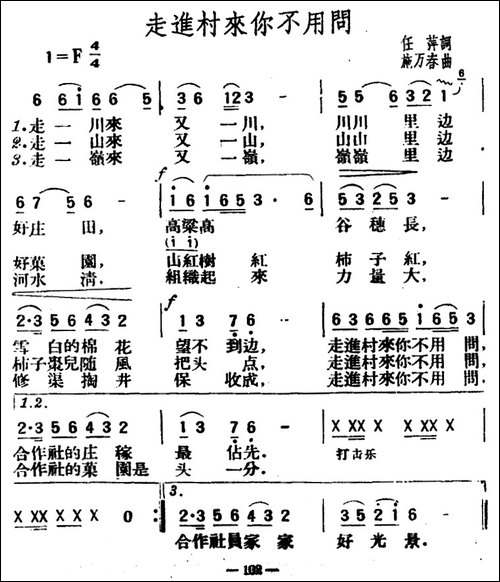 走進村來你不用問
1=F 4/4
任萍詞
施万春曲
6 6 i 6 6 5 | 3 6 1 2 3 - | 5 5 6 3 2 1 6 |
1.走一川來 又一川, 川川里边
2.走一山來 又一山, 山山里边
3.走一嶺來 又一嶺, 嶺嶺里边
f
6 7 5 6 - | i 6 i 6 5 3 · 6 | 5 3 2 5 3 - |
好庄田, 高粱高 谷穗長,
(i i)
好菓園, 山紅樹紅 柿子紅,
河水清, 組織起來 力量大,
f
2·3 5 6 4 3 2 | 1 3 7 6 - | 6 3 6 6 5 i 6 5 |
雪白的棉花 望不到边, 走進村來你不用問,
柿子棗兒随風 把头点, 走進村來你不用問,
修渠掏井 保收成, 走進村來你不用問,
1.2.
2·3 5 6 4 3 2 | 1 3 7 6 - | X XX X X |
合作社的庄稼 最佔先. 打击乐
合作社的菓園是 头一分.
3.
X XX X X X 0 :| 2·3 5 6 4 3 2 | 3 5 2 i 6 - |
合作社員家家 好光景.
— 102 —